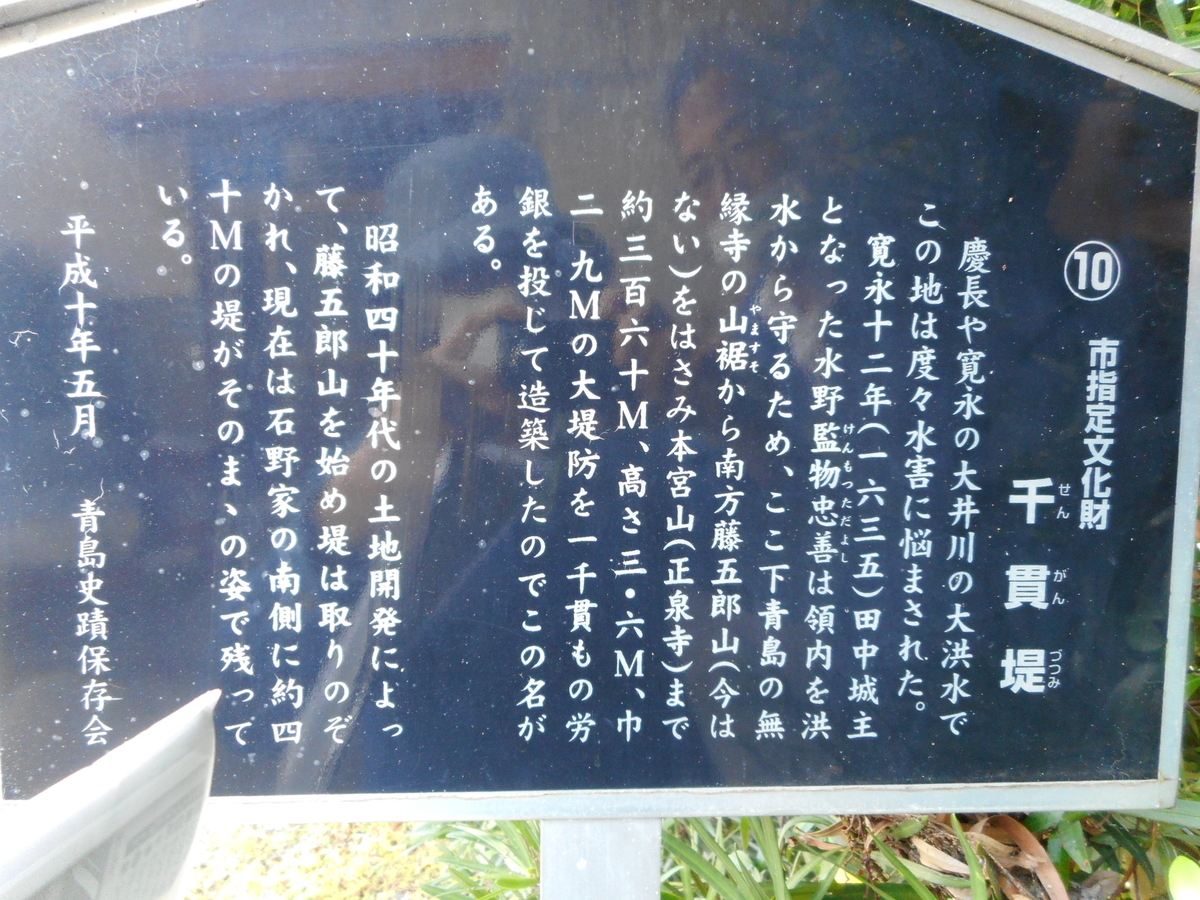 ⑩
市指定文化財
千貫堤
せんがんづつみ
慶長や寛永の大井川の大洪水で
この地は度々水害に悩まされた。
寛永十二年(一六三五)田中城主
となった水野監物忠善は領内を洪
けんもつただよし
水から守るため、ここ下青島の無
縁寺の山裾から南方藤五郎山(今は
やますそ
ない)をはさみ本宮山(正泉寺)まで
約三百六十M、高さ三・六M、巾
二九Mの大堤防を一千貫もの労
銀を投じて造築したのでこの名が
ある。
昭和四十年代の土地開発によっ
て、藤五郎山を始め堤は取りのぞ
かれ、現在は石野家の南側に約四
十Mの堤がそのまゝの姿で残って
いる。
平成十年五月 青島史蹟保存会